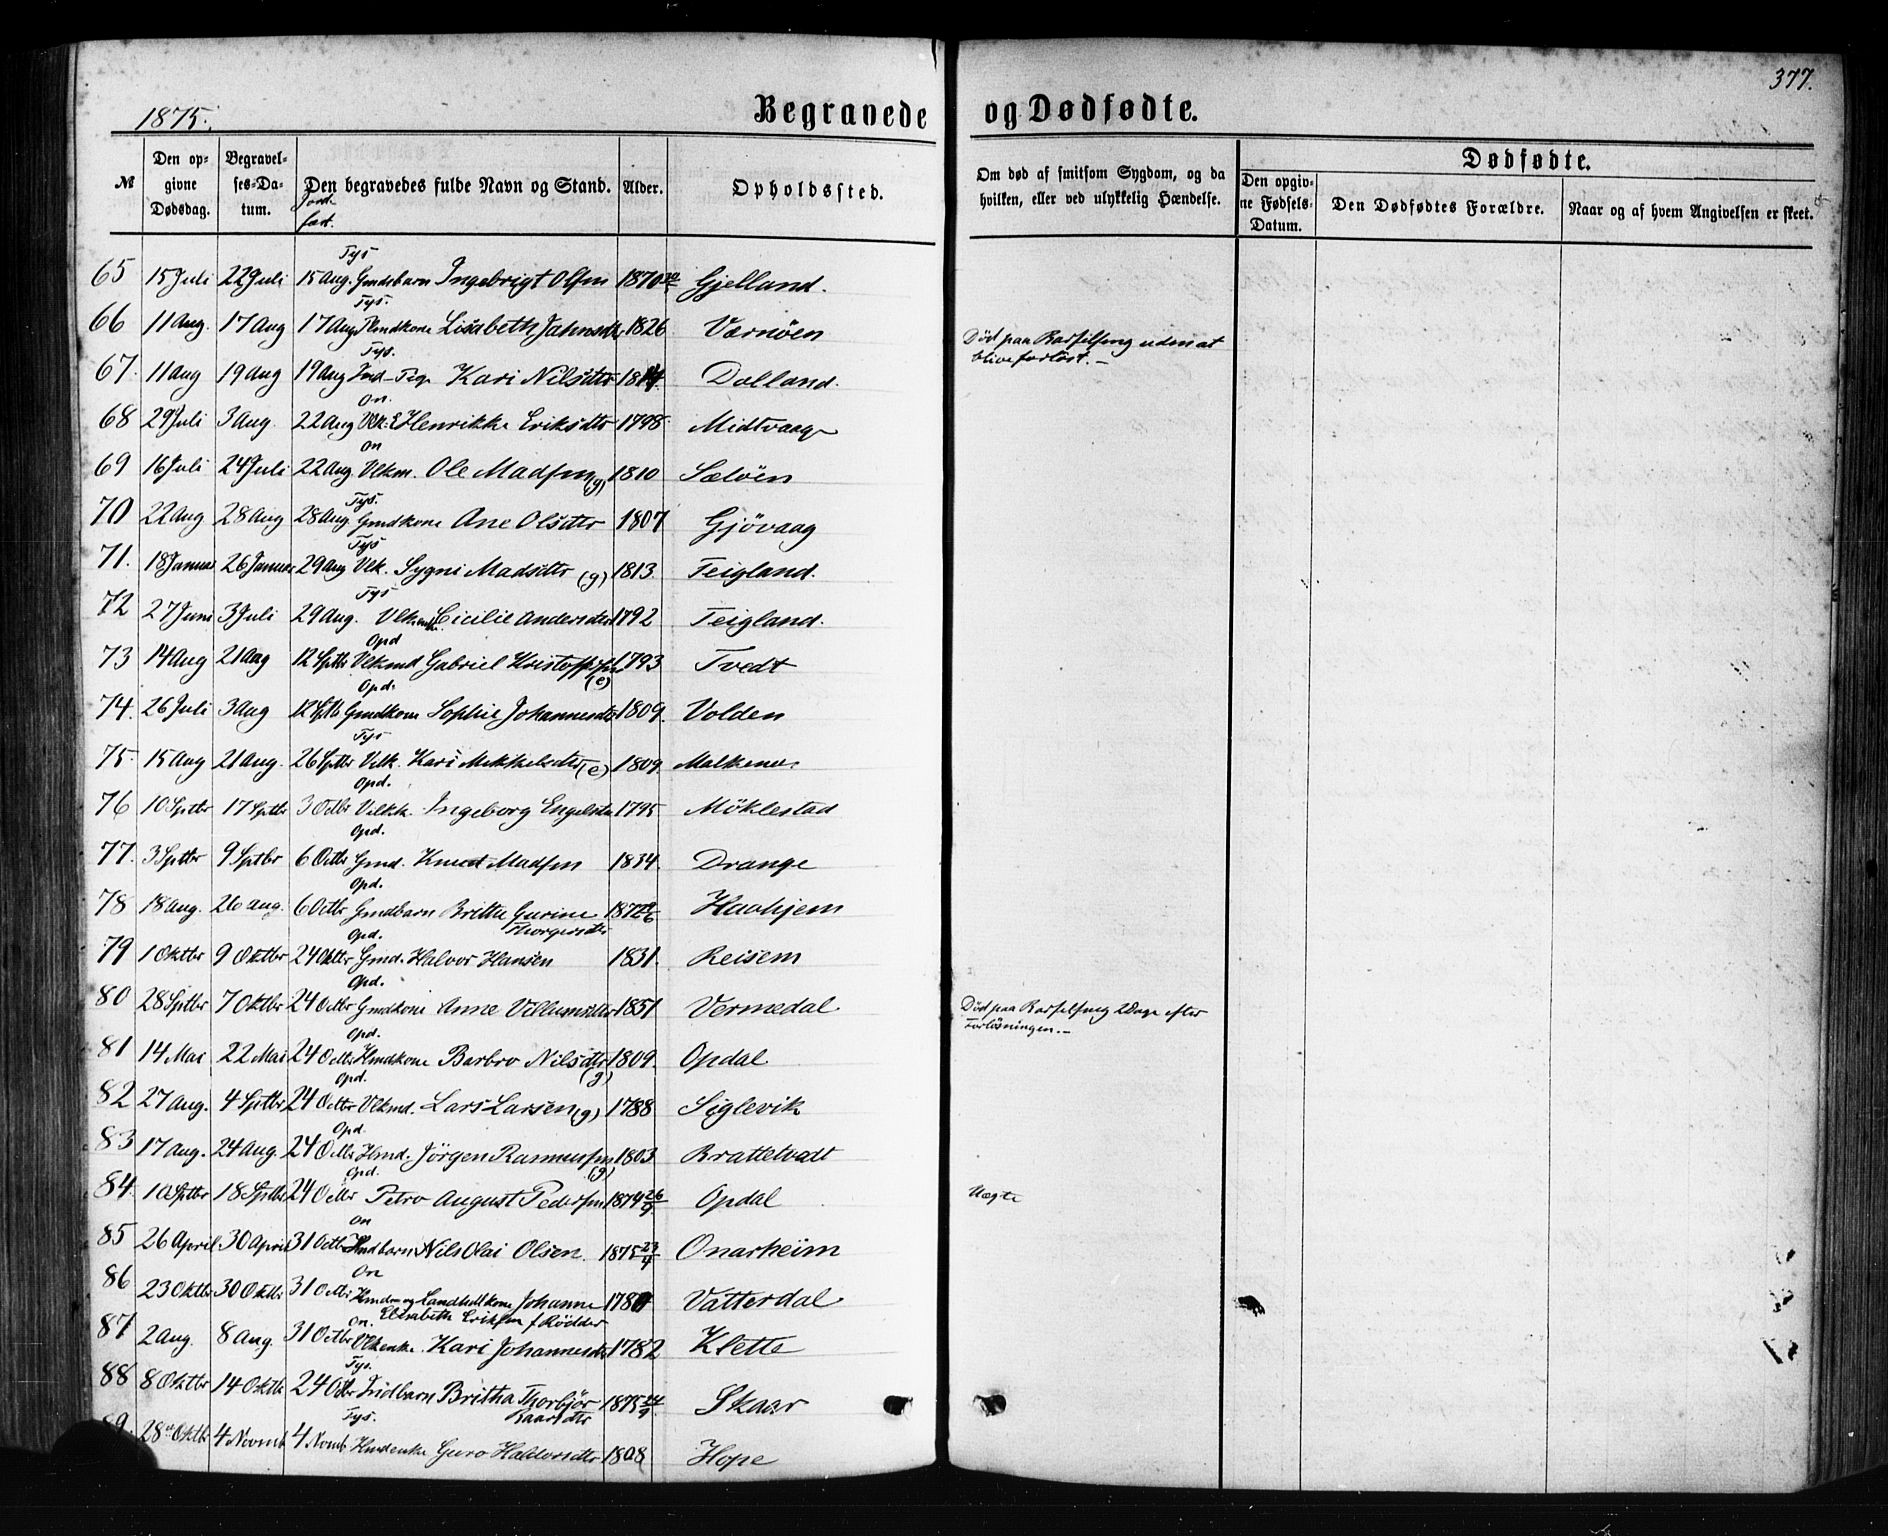 377.
1875.
Begravede og Dødfødte.
№ Den opgivne Dødsdag. Begravelses-Datum. Den begravedes fulde Navn og Stand. Alder. Opholdssted. Om død af smitsom Sygdom, og da hvilken, eller ved ulykkelig Hændelse. Dødfødte.
Den opgivne Fødsels-Datum. Den Dødfødtes Forældre. Naar og af hvem Angivelsen er skeet.
Jord-fæst.
Tys
65 15 Juli 22 Juli 15 Aug. Gmdsbarn Ingebrigt Olsen 1870 Gjelland.
Tys.
66 11 Aug. 17 Aug 17 Aug Lisabeth Jahnsdtr 1826 Værnöen Död paa Barselseng uden at
blive forlöst.-
Tys.
67. 11 Aug 19 Aug 19 Aug Ind-Pige Kari Nilsdtr Dalland.
On.
68 29 Juli 3 Aug. 22 Aug Henrikke Eriksdtr 1798 Midtvaage
On
69 16 Juli 24 Juli 22 Aug. Vlkm. Ole Madsen (g) 1810 Sælöen
Tys.
70 22 Aug 28 Aug 28 Aug. Gmdkone Ane Olsdtr 1807 Gjövaag
Tys
71. 18 Januar 26 Januar 29 Aug Vlk. Sygni Madsdtr (g) 1813. Teigland.
Tys
72 27 Juni 3 Juli 29 Aug. Vlkenke Cicilie Andersdtr 1792 Teigland.
Opd
73 14 Aug 21 Aug 12 Sptbr Vlkmd Gabriel Kristoffersen (e) 1793 Tvedt
Opd.
74. 26 Juli 3 Aug 12 Sptb Gmdkone Sophie Johannesdtr 1809. Volden
Tys
75. 15 Aug 21 Aug. 26 Sptbr Vlk. Kari Mikkelsdtr (e) 1809. Malkenes
Opd.
76 10 Sptbr 17 Sptbr 3 Octbr Vlkk. Ingeborg Engelsdtr 1795 Möklestad
Opd.
77. 3 Sptbr 9 Sptbr 6 Octbr Gmd. Knud Madsen 1834. Drange
Opd.
78 18 Aug. 26 Aug. 6 Octbr Gmdbarn Britha Gurine Havhjem
Thorgersdtr
Opd.
79 1 Oktbr 9 Oktbr 24 Oktbr Gmd. Halvor Hansen 1831. Reisem
Opd.
80 28 Sptbr 7 Oktbr 24 Octbr Gmdkone Anne Villumsdtr 1851 Vermedal Död paa Barselseng 2 Dage efter
Forlösningen.-
Opd.
81 14 Mai 22 Mai 24 Octbr Hmdkone Barbro Nilsdtr (g) 1809. Opdal
Opd.
82 27 Aug. 4 Sptbr 24 Octbr Vlkmd. Lars Larsen (g) 1788 Siglevik
Opd.
83 17 Aug. 24 Aug. 24 Octbr Hmd. Jörgen Rasmussen (g) 1803 Brattetvedt
Opd.
84. 10 Sptbr 18 Sptbr 24 Octbr Petro August Pedersen 1874 26/9 Opdal Uægte
On
85 26 April 30 April 31 Octbr Indbarn Nils Olai Olsen. 1875 23/4 Onarheim
On
86 23 Oktbr 30 Oktbr 31 Octbr Johanne Vatterdal
Elisabeth Eriksen f Rödder
On.
87 2 Aug. 8 Aug. 31 Octbr Vlkenke. Kari Johannesdtr 1782 Klette
Tys.
88 8 Oktbr 14 Oktbr 24 Octbr Indbarn Britha Thorbjör 1875 24/9. Skaar
Kaarsdtr
Tys.
89. 28 Oktb 4 Novmb 4 Novmb. Hmdenke Guro Haldorsdtr 1808 Hope